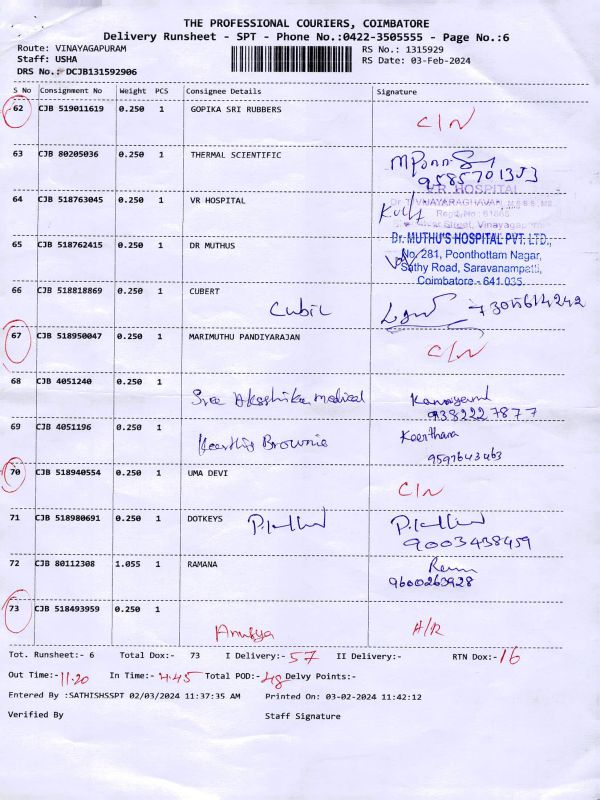 THE PROFESSIONAL COURIERS, COIMBATORE
Delivery Runsheet - SPT - Phone No.:0422-3505555 - Page No.:6
Route: VINAYAGAPURAM RS No.: 1315929
Staff: USHA RS Date: 03-Feb-2024
DRS No.: DCJB131592906
S No Consignment No Weight PCS Consignee Details Signature
62 CJB 519011619 0.250 1 GOPIKA SRI RUBBERS C/N
63 CJB 80205036 0.250 1 THERMAL SCIENTIFIC
9585701353
V.R. HOSPITAL
64 CJB 518763045 0.250 1 VR HOSPITAL
Dr. MUTHU'S HOSPITAL PVT. LTD.,
65 CJB 518762415 0.250 1 DR MUTHUS
No. 281, Poonthottam Nagar,
Sathy Road, Saravanampatti,
Coimbatore - 641 035.
66 CJB 518818869 0.250 1 CUBERT
7305614242
67 CJB 518950047 0.250 1 MARIMUTHU PANDIYARAJAN C/N
68 CJB 4051240 0.250 1
Sree Aksshika medical
9382227877
69 CJB 4051196 0.250 1 Keerthana
Keerthis Brownie
9597643463
70 CJB 518940554 0.250 1 UMA DEVI C/N
71 CJB 518980691 0.250 1 DOTKEYS
9003438459
72 CJB 80112308 1.055 1 RAMANA
9600263928
73 CJB 518493959 0.250 1
Anukya A/R
Tot. Runsheet:- 6 Total Dox:- 73 I Delivery:- 57 II Delivery:- RTN Dox:- 16
Out Time:- 11.20 In Time:- 4.45 Total POD:- 48 Delvy Points:-
Entered By :SATHISHSSPT 02/03/2024 11:37:35 AM Printed On: 03-02-2024 11:42:12
Verified By Staff Signature